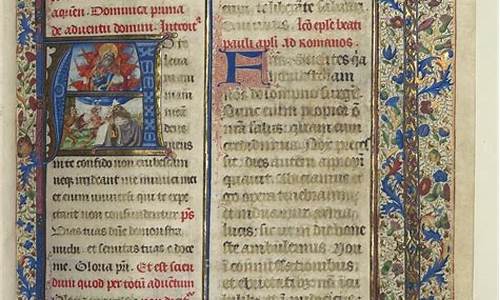 Dominica prima
de aduentu domini. Introit
te
leua
meam
deus
te confido non erubescam
neqz irrideant me inimici mei
et enim uniuersi qui te expe
ctant non confundentur ps
Vias tuas dne demonstra
michi et semitas tuas edoce
me. Gloria pri. Et est scien
dum quod per totum aduentum
te liberante saluari
Lco eple beati
pauli apli Ad Romanos.
Fratres Scientes quia
hora est iam
nos de sompno surgere
Nunc enim propior est
nra salus: quam cum
credidimus. Nox preces
sit. dies autem appropin
quauit. Abiciamus er
go opera tenebrarum
et induamur arma lu
cis. sicut in die hone
ste ambulemus. Non
in comissationibus
et ebrietatibus